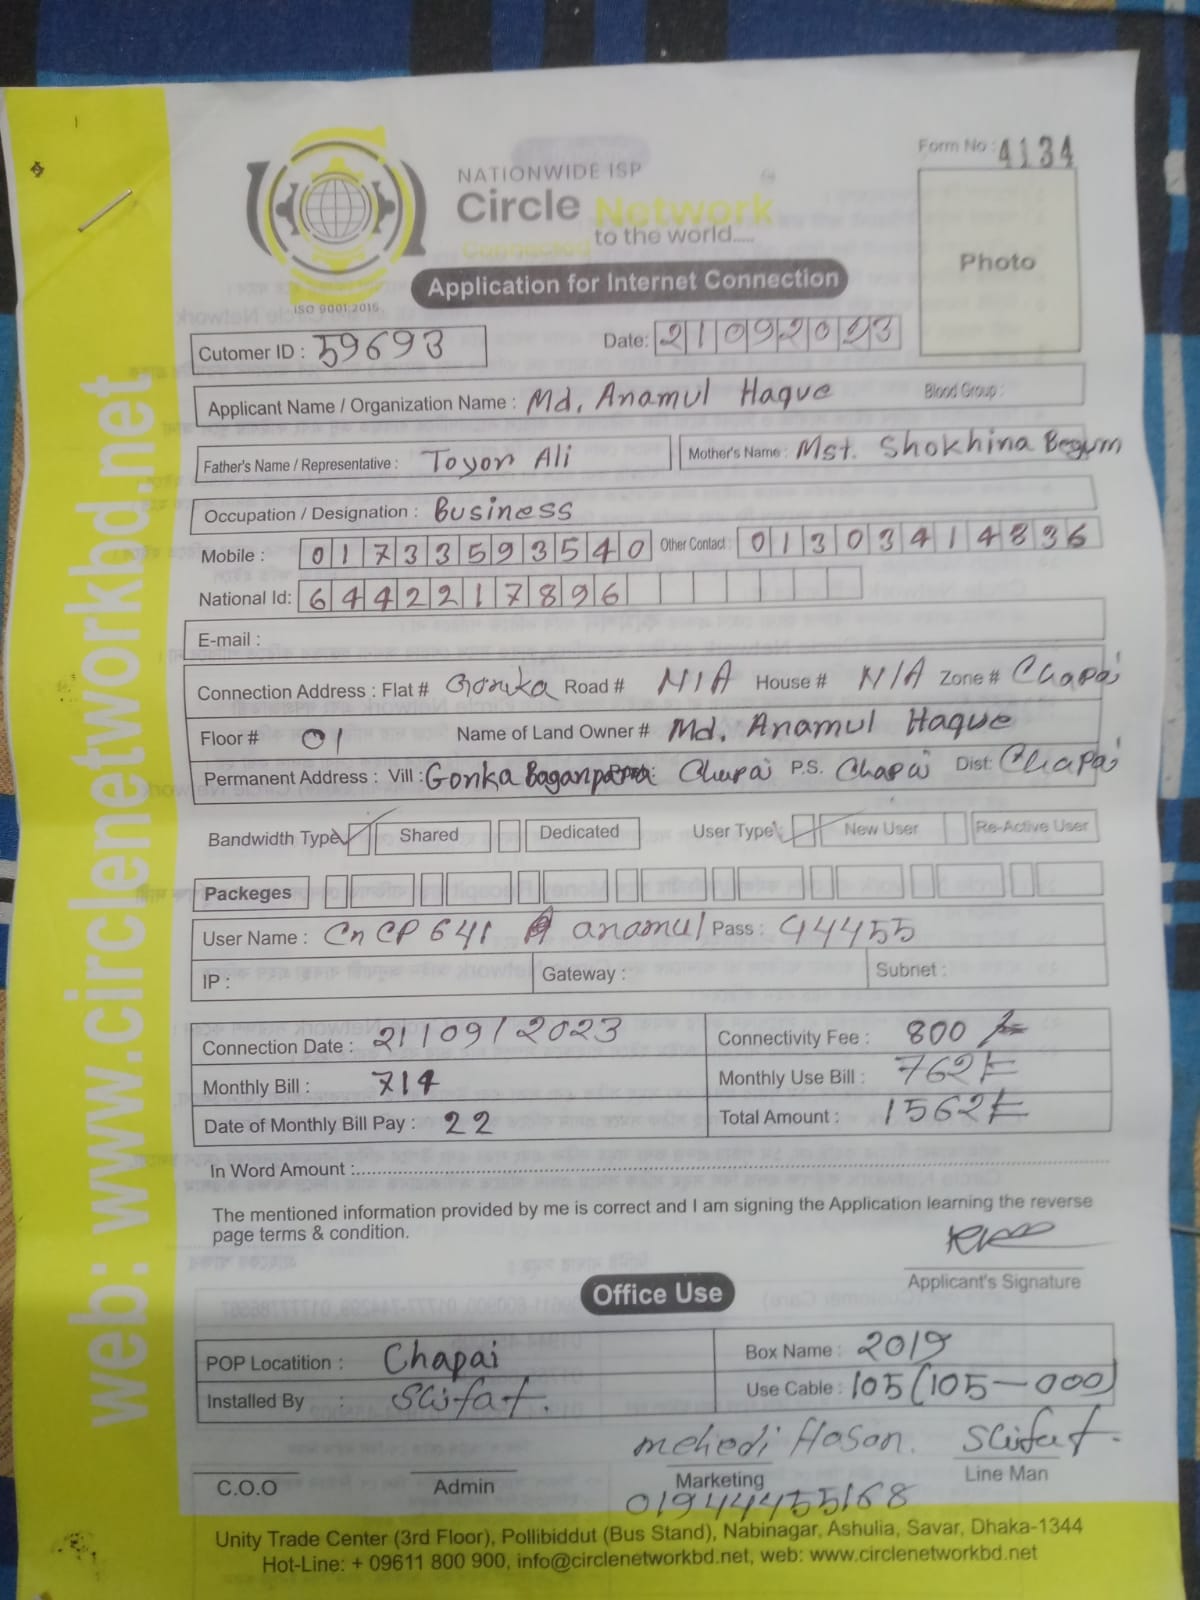 Form No : 4134
NATIONWIDE ISP
Circle Network
Connected to the world.....
ISO 9001:2015
Application for Internet Connection
Photo
Cutomer ID : 59693
Date: 21092023
Applicant Name / Organization Name : Md. Anamul Haque Blood Group :
Father's Name / Representative : Toyor Ali Mother's Name : Mst. Shokhina Begum
Occupation / Designation : Business
Mobile : 01733593540 Other Contact : 01303414836
National Id: 6442217896
E-mail :
Connection Address : Flat # Gonka Road # N/A House # N/A Zone # Chapai
Floor # 01 Name of Land Owner # Md. Anamul Haque
Permanent Address : Vill : Gonka Baganpara Chapai P.S. Chapai Dist: Chapai
Bandwidth Type Shared Dedicated User Type New User Re-Active User
Packeges
User Name : CnCP641 anamul Pass : 44455
IP : Gateway : Subnet :
Connection Date : 21/09/2023 Connectivity Fee : 800
Monthly Bill : 714 Monthly Use Bill : 762
Date of Monthly Bill Pay : 22 Total Amount : 1562
In Word Amount :
The mentioned information provided by me is correct and I am signing the Application learning the reverse
page terms & condition.
Applicant's Signature
Office Use
POP Locatition : Chapai Box Name : 2019
Installed By : Scifat. Use Cable : 105(105-000)
mehedi Hasan. Scifat.
C.O.O Admin Marketing Line Man
01944455168
Unity Trade Center (3rd Floor), Pollibiddut (Bus Stand), Nabinagar, Ashulia, Savar, Dhaka-1344
Hot-Line: + 09611 800 900, info@circlenetworkbd.net, web: www.circlenetworkbd.net
web: www.circlenetworkbd.net